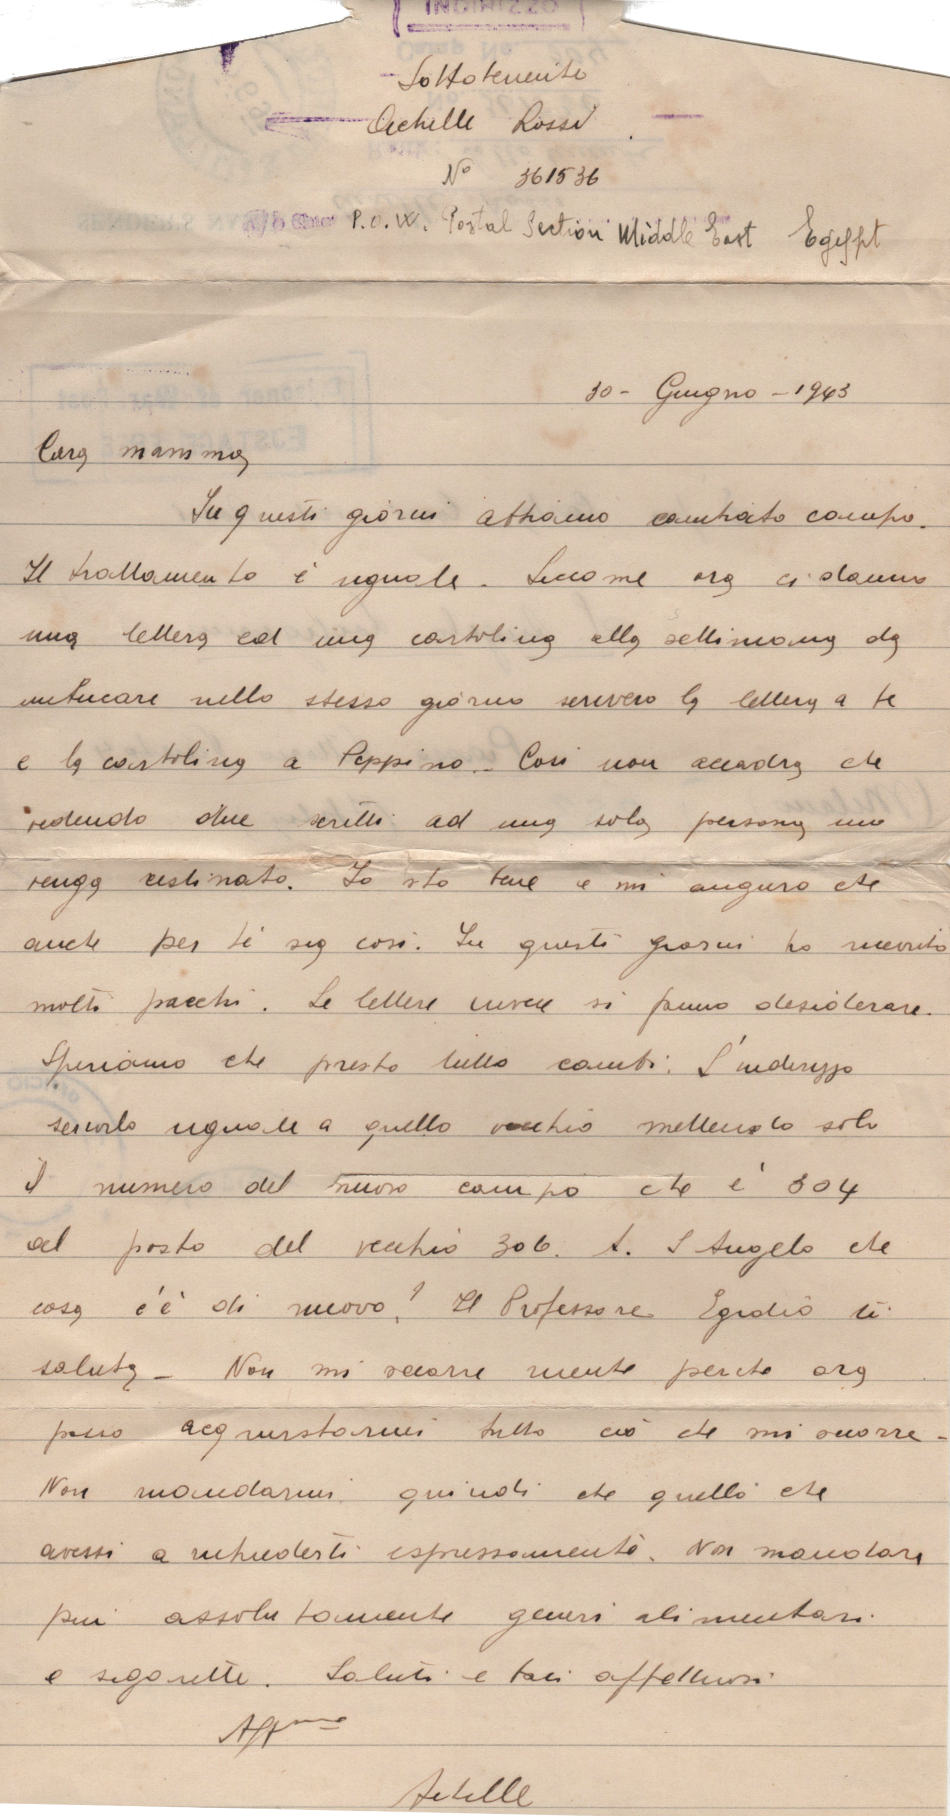 INDIRIZZO
Sottotenente
Achille Rossi
N° 361536
P.O.W. Postal Section Middle East Egypt
30 - Giugno - 1943
Cara mamma
In questi giorni abbiamo cambiato campo.
Il trattamento è uguale. Siccome ora ci danno
una lettera ed una cartolina alla settimana da
imbucare nello stesso giorno scriverò la lettera a te
e la cartolina a Peppino. Così non accadrà che
vedendo due scritti ad una sola persona uno
venga cestinato. Io sto bene e mi auguro che
anche per te sia così. In questi giorni ho ricevuto
molti pacchi. Le lettere invece si fanno desiderare.
Speriamo che presto tutto cambi. L'indirizzo
scrivilo uguale a quello vecchio mettendo solo
il numero del nuovo campo che è 304
al posto del vecchio 306. A S. Angelo che
cosa c'è di nuovo? Il Professore Egidio ti
saluta - Non mi occorre niente perché ora
posso acquistarmi tutto ciò che mi occorre -
Non mandarmi quindi che quello che
avessi a richiederti espressamente. Non mandare
più assolutamente generi alimentari
e sigarette. Saluti e baci affettuosi
Aff.mo
Achille